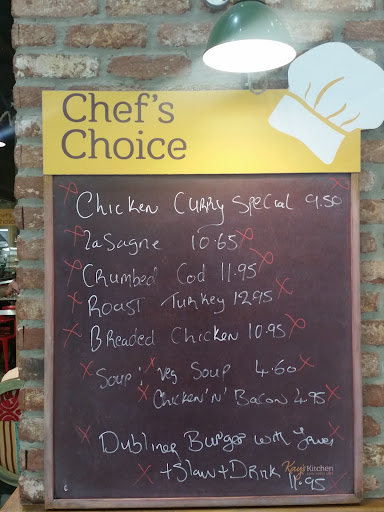 Chef's
Choice
Chicken Curry Special 9.50
LaSagne 10.65
Crumbed Cod 11.95
Roast Turkey 12.95
Breaded Chicken 10.95
Soup: Veg Soup 4.60
Chicken 'N' Bacon 4.95
Dubliner Burger with
+ Slaw + Drink
11.95
Kay's Kitchen